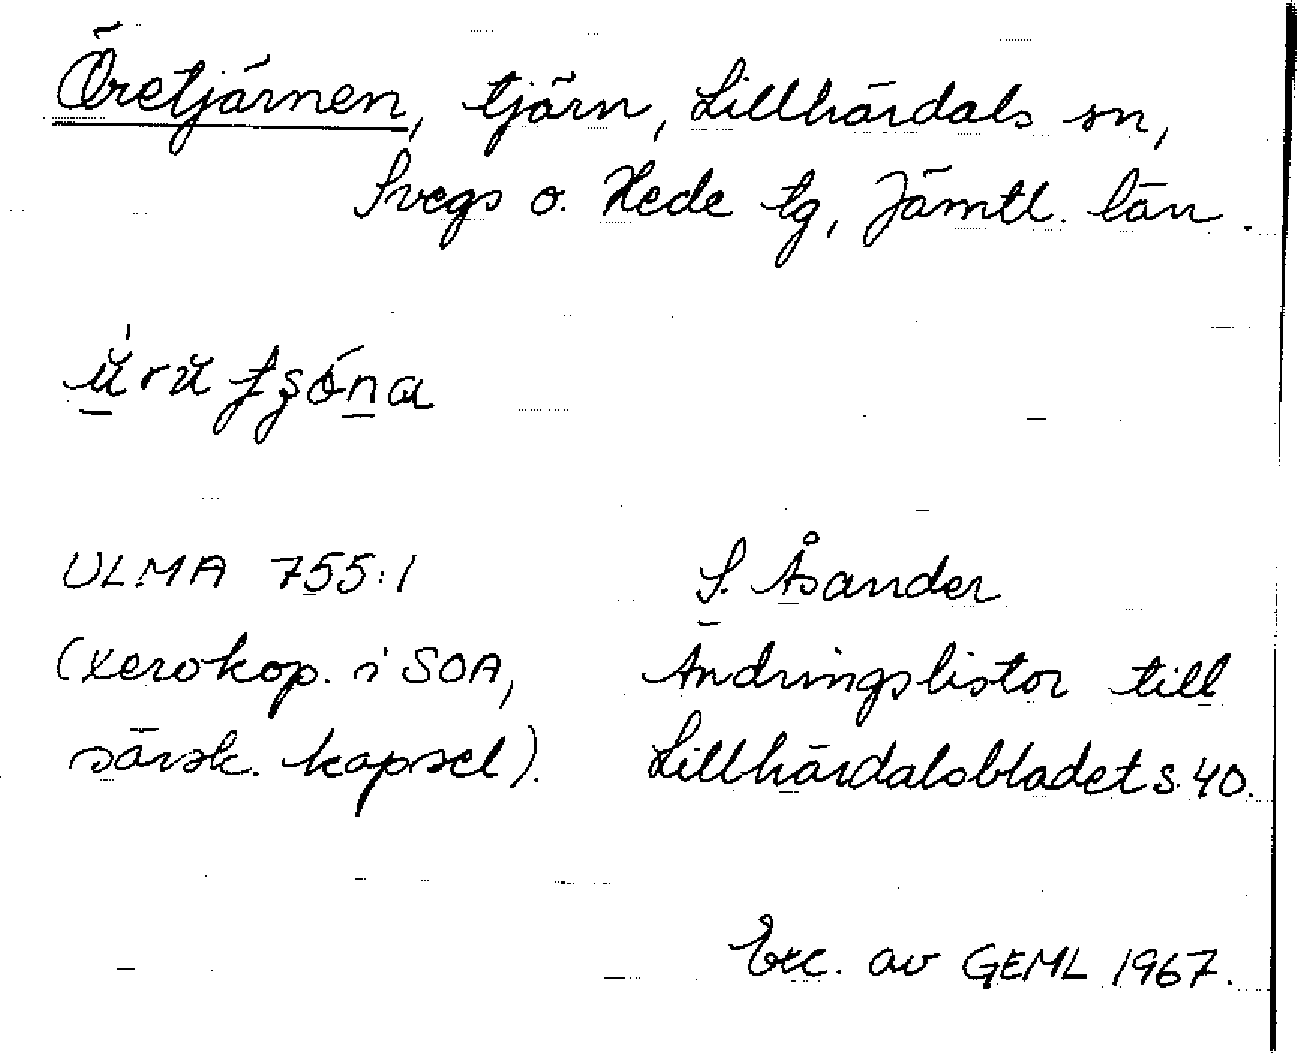 Öretjärnen, tjärn, Lillhärdals sn,
Svegs o. Hede tg, Jämtl. län.
ULMA 755:1
(xerokop. i SOA,
särsk. kapsel).
S. Åsander
Ändringslistor till
Lillhärdalsbladet s. 40.
Exc. av GEML 1967.